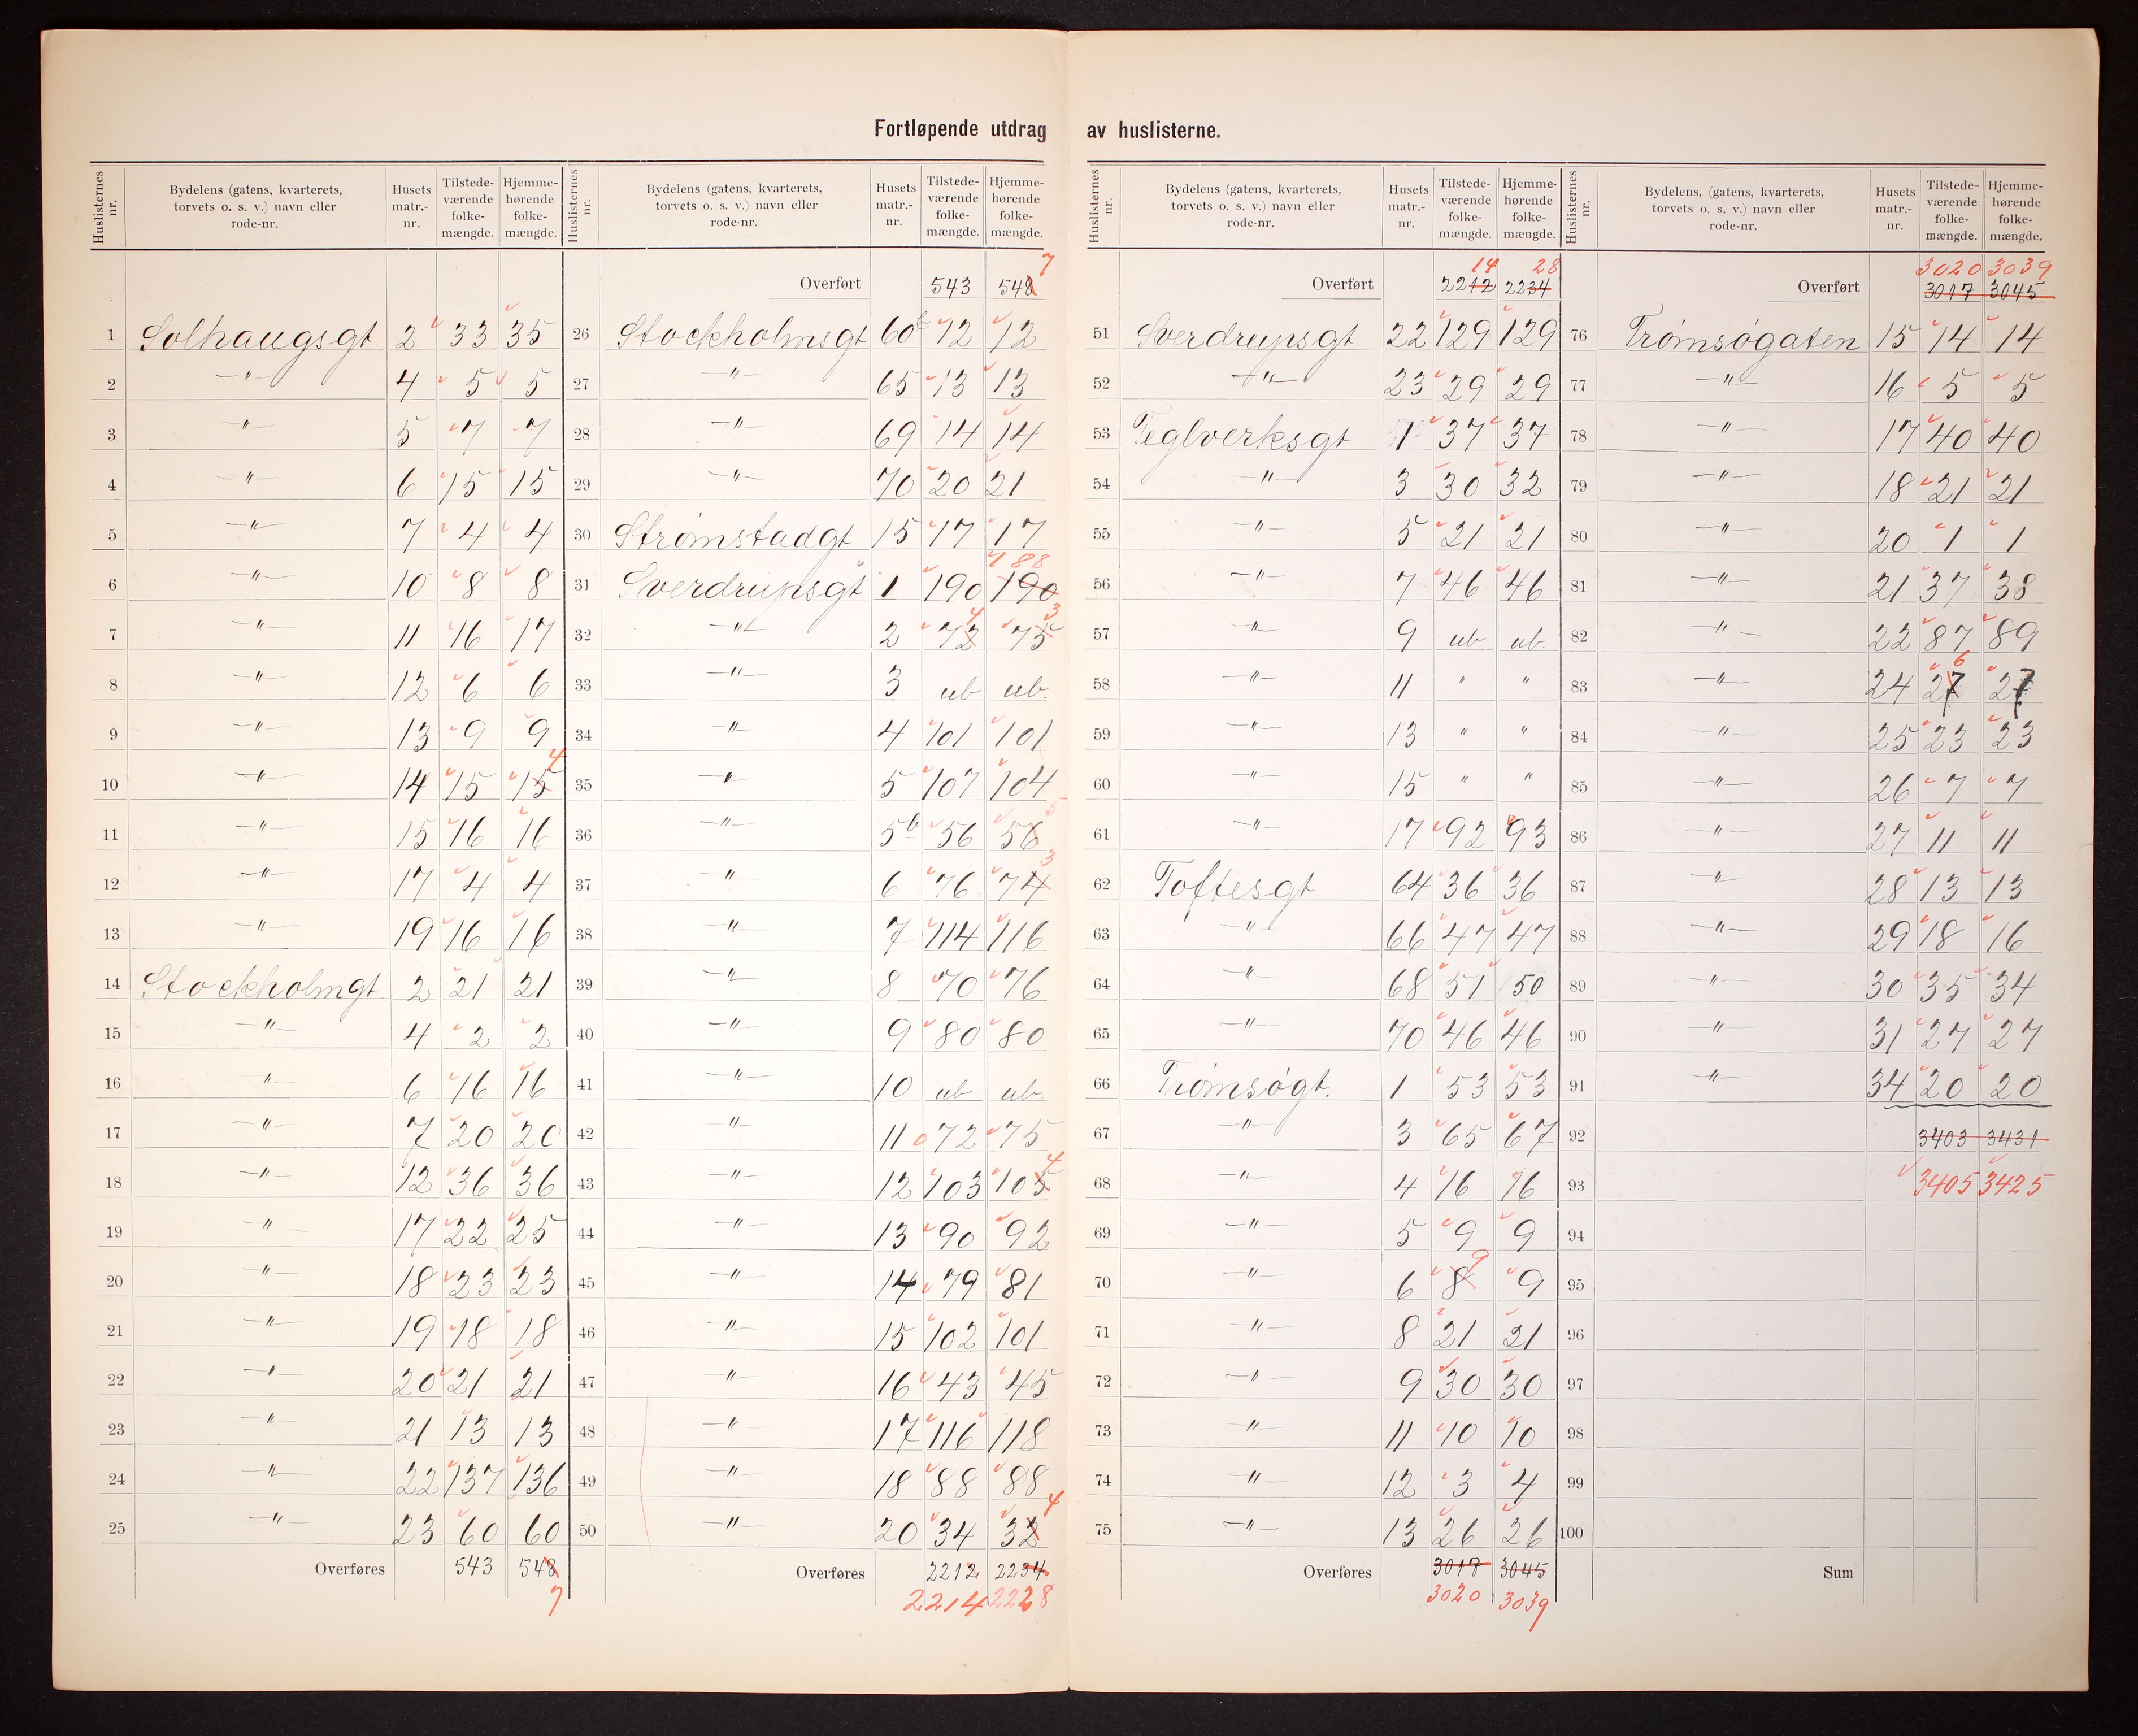 Fortløpende utdrag av huslisterne.
Huslisternes nr. | Bydelens (gatens, kvarterets, torvets o. s. v.) navn eller rode-nr. | Husets matr.-nr. | Tilstedeværende folkemængde. | Hjemmehørende folkemængde.
1 Solhaugsgt 2 33 35
2 —"— 4 5 5
3 —"— 5 7 7
4 —"— 6 15 15
5 —"— 7 4 4
6 —"— 10 8 8
7 —"— 11 16 17
8 —"— 12 6 6
9 —"— 13 9 9
10 —"— 14 15 15 4
11 —"— 15 16 16
12 —"— 17 4 4
13 —"— 19 16 16
14 Stockholmgt 2 21 21
15 —"— 4 2 2
16 —"— 6 16 16
17 —"— 7 20 20
18 —"— 12 36 36
19 —"— 17 22 25
20 —"— 18 23 23
21 —"— 19 18 18
22 —"— 20 21 21
23 —"— 21 13 13
24 —"— 22 137 136
25 —"— 23 60 60
Overføres 543 548
7
Huslisternes nr. | Bydelens (gatens, kvarterets, torvets o. s. v.) navn eller rode-nr. | Husets matr.-nr. | Tilstedeværende folkemængde. | Hjemmehørende folkemængde.
Overført 543 548 7
26 Stockholmsgt 60b 12 12
27 —"— 65 13 13
28 —"— 69 14 14
29 —"— 70 20 21
30 Strømstadgt 15 17 17
31 Sverdrupsgt 1 190 190 188
32 —"— 2 72 4 75 3
33 —"— 3 ub ub.
34 —"— 4 101 101
35 —"— 5 107 104
36 —"— 5b 56 56 5
37 —"— 6 76 74 3
38 —"— 7 114 116
39 —"— 8 70 76
40 —"— 9 80 80
41 —"— 10 ub ub.
42 —"— 11 72 75
43 —"— 12 103 105 4
44 —"— 13 90 92
45 —"— 14 79 81
46 —"— 15 102 101
47 —"— 16 43 45
48 —"— 17 116 118
49 —"— 18 88 88
50 —"— 20 34 32 4
Overføres 2212 2234
2214 2228
Huslisternes nr. | Bydelens (gatens, kvarterets, torvets o. s. v.) navn eller rode-nr. | Husets matr.-nr. | Tilstedeværende folkemængde. | Hjemmehørende folkemængde.
14 28
Overført 2212 2234
51 Sverdrupsgt 22 129 129
52 —"— 23 29 29
53 Teglverksgt 1 37 37
54 —"— 3 30 32
55 —"— 5 21 21
56 —"— 7 46 46
57 —"— 9 ub ub.
58 —"— 11 " "
59 —"— 13 " "
60 —"— 15 " "
61 —"— 17 92 93
62 Toftesgt 64 36 36
63 —"— 66 47 47
64 —"— 68 51 50
65 —"— 70 46 46
66 Trømsøgt. 1 53 53
67 —"— 3 65 67
68 —"— 4 16 16
69 —"— 5 9 9
70 —"— 6 8 9 9
71 —"— 8 21 21
72 —"— 9 30 30
73 —"— 11 10 10
74 —"— 12 3 4
75 —"— 13 26 26
Overføres 3017 3045
3020 3039
Huslisternes nr. | Bydelens, (gatens, kvarterets, torvets o. s. v.) navn eller rode-nr. | Husets matr.-nr. | Tilstedeværende folkemængde. | Hjemmehørende folkemængde.
3020 3039
Overført 3017 3045
76 Trømsøgaten 15 14 14
77 —"— 16 5 5
78 —"— 17 40 40
79 —"— 18 21 21
80 —"— 20 1 1
81 —"— 21 37 38
82 —"— 22 87 89
83 —"— 24 27 6 27
84 —"— 25 23 23
85 —"— 26 7 7
86 —"— 27 11 11
87 —"— 28 13 13
88 —"— 29 18 16
89 —"— 30 35 34
90 —"— 31 27 27
91 —"— 34 20 20
92 3403 3431
93 3405 3425
94
95
96
97
98
99
100
Sum